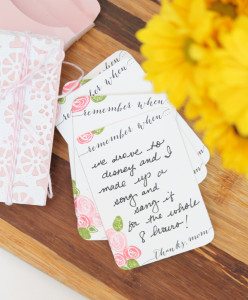 remember when
remember when
remember when
we drove to
disney and I
made up a
song and
sang it
for the whole
8 hours!
Thanks, mom